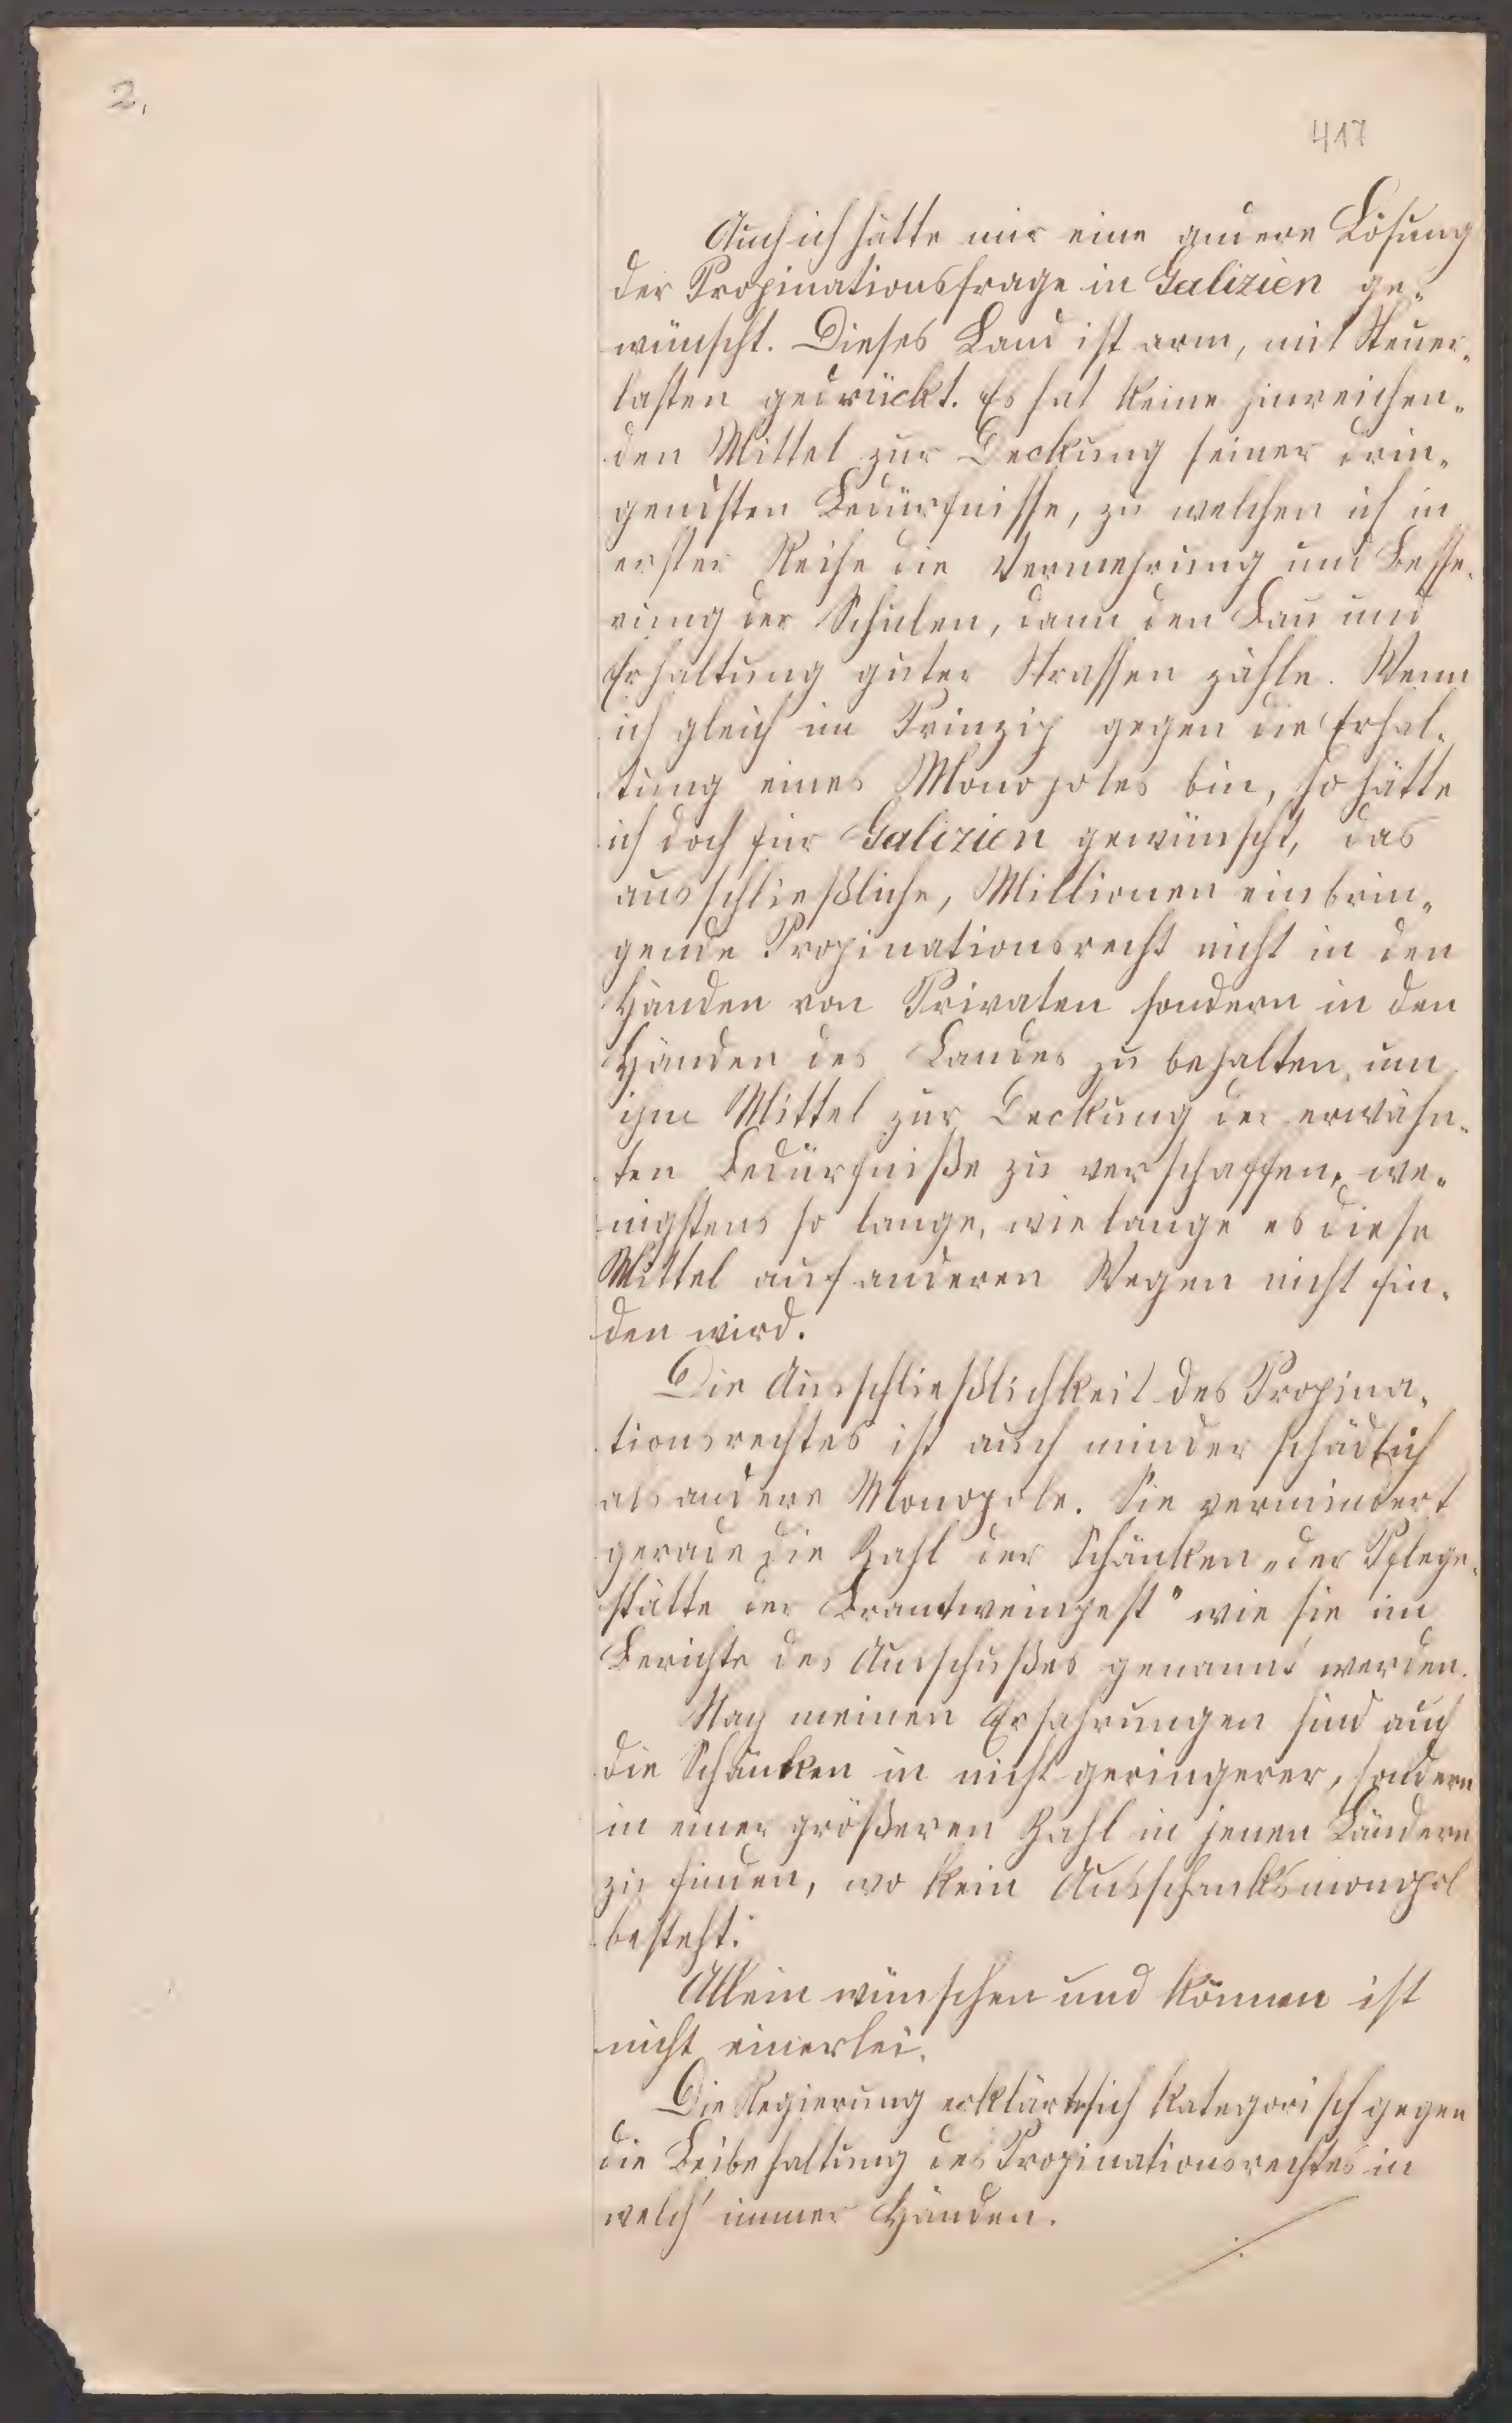 2.
417
Auch ich hätte mir eine andere Lösung
der Propinationsfrage in Galizien ge-
wünscht. Dieses Land ist arm, mit Steuer-
lasten gedrückt. Es hat keine hinreichen-
den Mittel zur Deckung seiner drin-
gendsten Bedürfnisse, zu welchen ich in
erster Reihe die Vermehrung und Besse-
rung der Schulen, dann den Bau und
Erhaltung guter Strassen zähle. Wenn
ich gleich im Prinzip gegen die Erhal-
tung eines Monopoles bin, so hätte
ich doch für Galizien gewünscht, das
ausschließliche, Millionen einbrin-
gende Propinationsrecht nicht in den
Händen von Privaten sondern in den
Händen des Landes zu behalten, um
ihm Mittel zur Deckung der erwähn-
ten Bedürfniße zu verschaffen, we-
nigstens so lange, wie lange es diese
Mittel auf anderen Wegen nicht fin-
den wird.
Die Ausschließlichkeit des Propina-
tionsrechtes ist auch minder schädlich
als andere Monopole. Sie vermindert
gerade die Zahl der Schänken „der Pflege-
stätte der Brantweinpest" wie sie im
Berichte des Ausschußes genannt werden.
Nach meinen Erfahrungen sind auch
die Schänken in nicht geringerer, sondern
in einer größeren Zahl in jenen Ländern
zu finden, wo kein Ausschanksmonopol
besteht.
Allein wünschen und können ist
nicht einerlei.
Die Regierung erklärte sich kategorisch gegen
die Beibehaltung des Propinationsrechtes in
welch' immer Händen.
./.